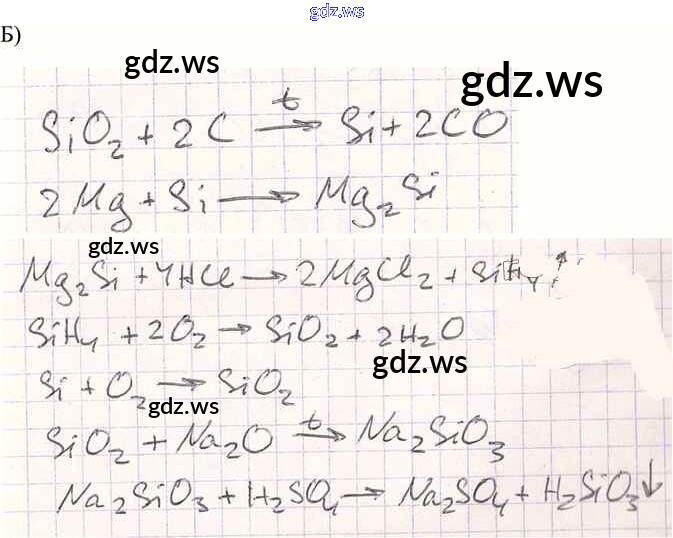 gdz.ws
Б)
gdz.ws
gdz.ws
SiO₂ + 2C —t→ Si + 2CO
2Mg + Si → Mg₂Si
gdz.ws
Mg₂Si + 4HCl → 2MgCl₂ + SiH₄↑
SiH₄ + 2O₂ → SiO₂ + 2H₂O
gdz.ws
Si + O₂ → SiO₂
gdz.ws
SiO₂ + Na₂O —t→ Na₂SiO₃
Na₂SiO₃ + H₂SO₄ → Na₂SO₄ + H₂SiO₃↓